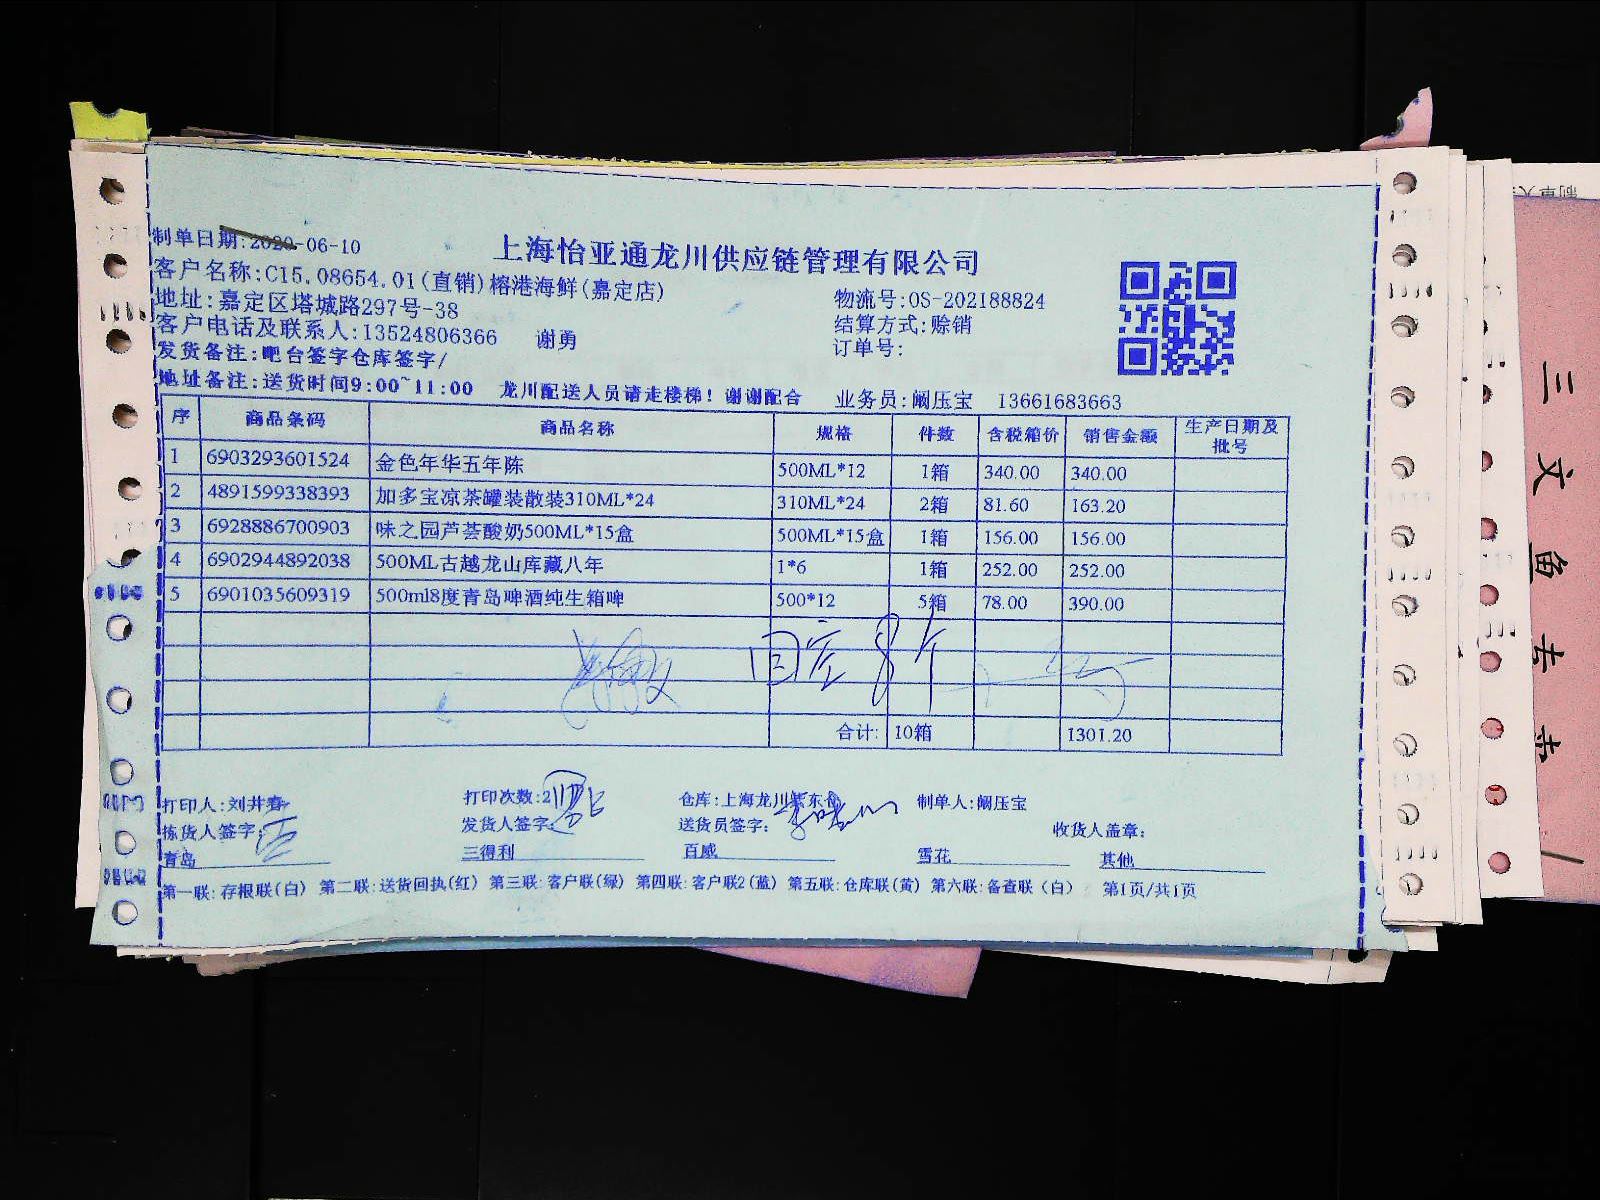 上海怡亚通龙川供应链管理有限公司
制单日期:2020-06-10
客户名称:C15.08654.01(直销)榕港海鲜(嘉定店)
地址:嘉定区塔城路297号-38
客户电话及联系人:13524806366 谢勇
发货备注:吧台签字仓库签字/
地址备注:送货时间9:00~11:00 龙川配送人员请走楼梯!谢谢配合
物流号:OS-202188824
结算方式:赊销
订单号:
业务员:阚压宝 13661683663
序 商品条码 商品名称 规格 件数 含税箱价 销售金额 生产日期及批号
1 6903293601524 金色年华五年陈 500ML*12 1箱 340.00 340.00
2 4891599338393 加多宝凉茶罐装散装310ML*24 310ML*24 2箱 81.60 163.20
3 6928886700903 味之园芦荟酸奶500ML*15盒 500ML*15盒 1箱 156.00 156.00
4 6902944892038 500ML古越龙山库藏八年 1*6 1箱 252.00 252.00
5 6901035609319 500ml8度青岛啤酒纯生箱啤 500*12 5箱 78.00 390.00
合计: 10箱 1301.20
打印人:刘井春 打印次数:2 仓库:上海龙川 制单人:阚压宝
拣货人签字: 发货人签字: 送货员签字: 收货人盖章:
青岛 三得利 百威 雪花 其他
第一联:存根联(白) 第二联:送货回执(红) 第三联:客户联(绿) 第四联:客户联2(蓝) 第五联:仓库联(黄) 第六联:备查联(白) 第1页/共1页
三文鱼去